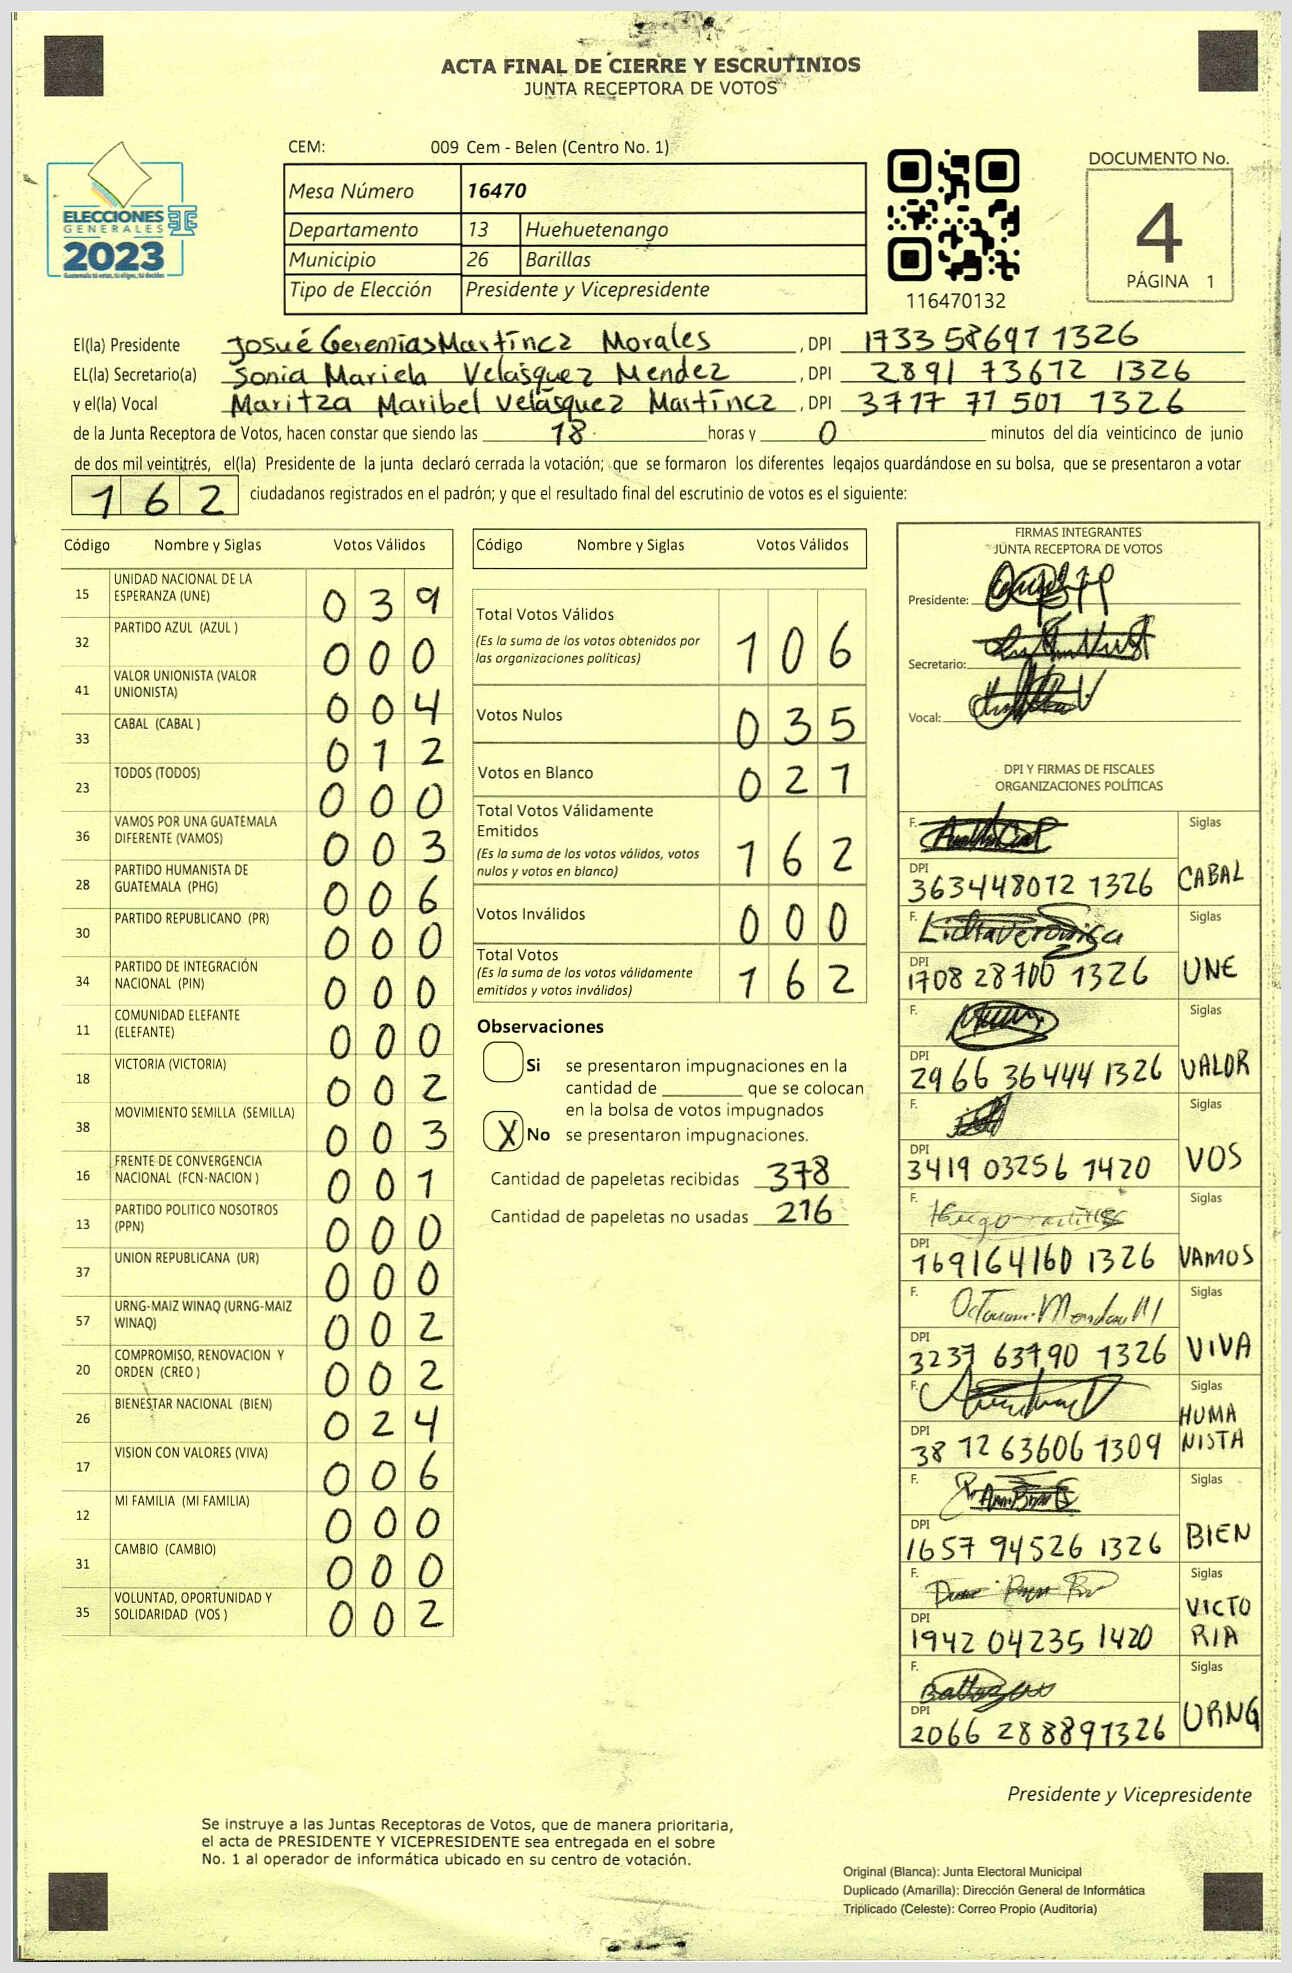 ACTA FINAL DE CIERRE Y ESCRUTINIOS
JUNTA RECEPTORA DE VOTOS
ELECCIONES
GENERALES
2023
Guatemala tú votas, tú eliges, tú decides
CEM: 009 Cem - Belen (Centro No. 1)
Mesa Número 16470
Departamento 13 Huehuetenango
Municipio 26 Barillas
Tipo de Elección Presidente y Vicepresidente
116470132
DOCUMENTO No.
4
PÁGINA 1
El(la) Presidente Josué Geremías Martínez Morales, DPI 1733 58697 1326
EL(la) Secretario(a) Sonia Mariela Velásquez Mendez, DPI 2891 73672 1326
y el(la) Vocal Maritza Maribel Velásquez Martínez, DPI 3717 71 501 1326
de la Junta Receptora de Votos, hacen constar que siendo las 18 horas y 0 minutos del día veinticinco de junio
de dos mil veintitrés, el(la) Presidente de la junta declaró cerrada la votación; que se formaron los diferentes legajos quardándose en su bolsa, que se presentaron a votar
162 ciudadanos registrados en el padrón; y que el resultado final del escrutinio de votos es el siguiente:
Código Nombre y Siglas Votos Válidos
15 UNIDAD NACIONAL DE LA ESPERANZA (UNE) 039
32 PARTIDO AZUL (AZUL ) 000
41 VALOR UNIONISTA (VALOR UNIONISTA) 004
33 CABAL (CABAL ) 012
23 TODOS (TODOS) 000
36 VAMOS POR UNA GUATEMALA DIFERENTE (VAMOS) 003
28 PARTIDO HUMANISTA DE GUATEMALA (PHG) 006
30 PARTIDO REPUBLICANO (PR) 000
34 PARTIDO DE INTEGRACIÓN NACIONAL (PIN) 000
11 COMUNIDAD ELEFANTE (ELEFANTE) 000
18 VICTORIA (VICTORIA) 002
38 MOVIMIENTO SEMILLA (SEMILLA) 003
16 FRENTE DE CONVERGENCIA NACIONAL (FCN-NACION ) 001
13 PARTIDO POLITICO NOSOTROS (PPN) 000
37 UNION REPUBLICANA (UR) 000
57 URNG-MAIZ WINAQ (URNG-MAIZ WINAQ) 002
20 COMPROMISO, RENOVACION Y ORDEN (CREO ) 002
26 BIENESTAR NACIONAL (BIEN) 024
17 VISION CON VALORES (VIVA) 006
12 MI FAMILIA (MI FAMILIA) 000
31 CAMBIO (CAMBIO) 000
35 VOLUNTAD, OPORTUNIDAD Y SOLIDARIDAD (VOS ) 002
Código Nombre y Siglas Votos Válidos
Total Votos Válidos 106
(Es la suma de los votos obtenidos por
las organizaciones políticas)
Votos Nulos 035
Votos en Blanco 021
Total Votos Válidamente
Emitidos 162
(Es la suma de los votos válidos, votos
nulos y votos en blanco)
Votos Inválidos 000
Total Votos 162
(Es la suma de los votos válidamente
emitidos y votos inválidos)
Observaciones
Si se presentaron impugnaciones en la
cantidad de ________ que se colocan
en la bolsa de votos impugnados
X No se presentaron impugnaciones.
Cantidad de papeletas recibidas 378
Cantidad de papeletas no usadas 216
FIRMAS INTEGRANTES
JUNTA RECEPTORA DE VOTOS
Presidente:
Secretario:
Vocal:
DPI Y FIRMAS DE FISCALES
ORGANIZACIONES POLÍTICAS
F. Siglas
DPI 363448012 1326 CABAL
F. Siglas
DPI 1708 28700 1326 UNE
F. Siglas
DPI 2966 36444 1326 VALOR
F. Siglas
DPI 3419 03256 1420 VOS
F. Siglas
DPI 169164160 1326 VAMOS
F. Siglas
DPI 3237 63790 1326 VIVA
F. Siglas
DPI 38 12 63606 1309 HUMANISTA
F. Siglas
DPI 1657 94526 1326 BIEN
F. Siglas
DPI 1942 04235 1420 VICTORIA
F. Siglas
DPI 2066 28889 1326 URNG
Presidente y Vicepresidente
Se instruye a las Juntas Receptoras de Votos, que de manera prioritaria,
el acta de PRESIDENTE Y VICEPRESIDENTE sea entregada en el sobre
No. 1 al operador de informática ubicado en su centro de votación.
Original (Blanca): Junta Electoral Municipal
Duplicado (Amarilla): Dirección General de Informática
Triplicado (Celeste): Correo Propio (Auditoría)